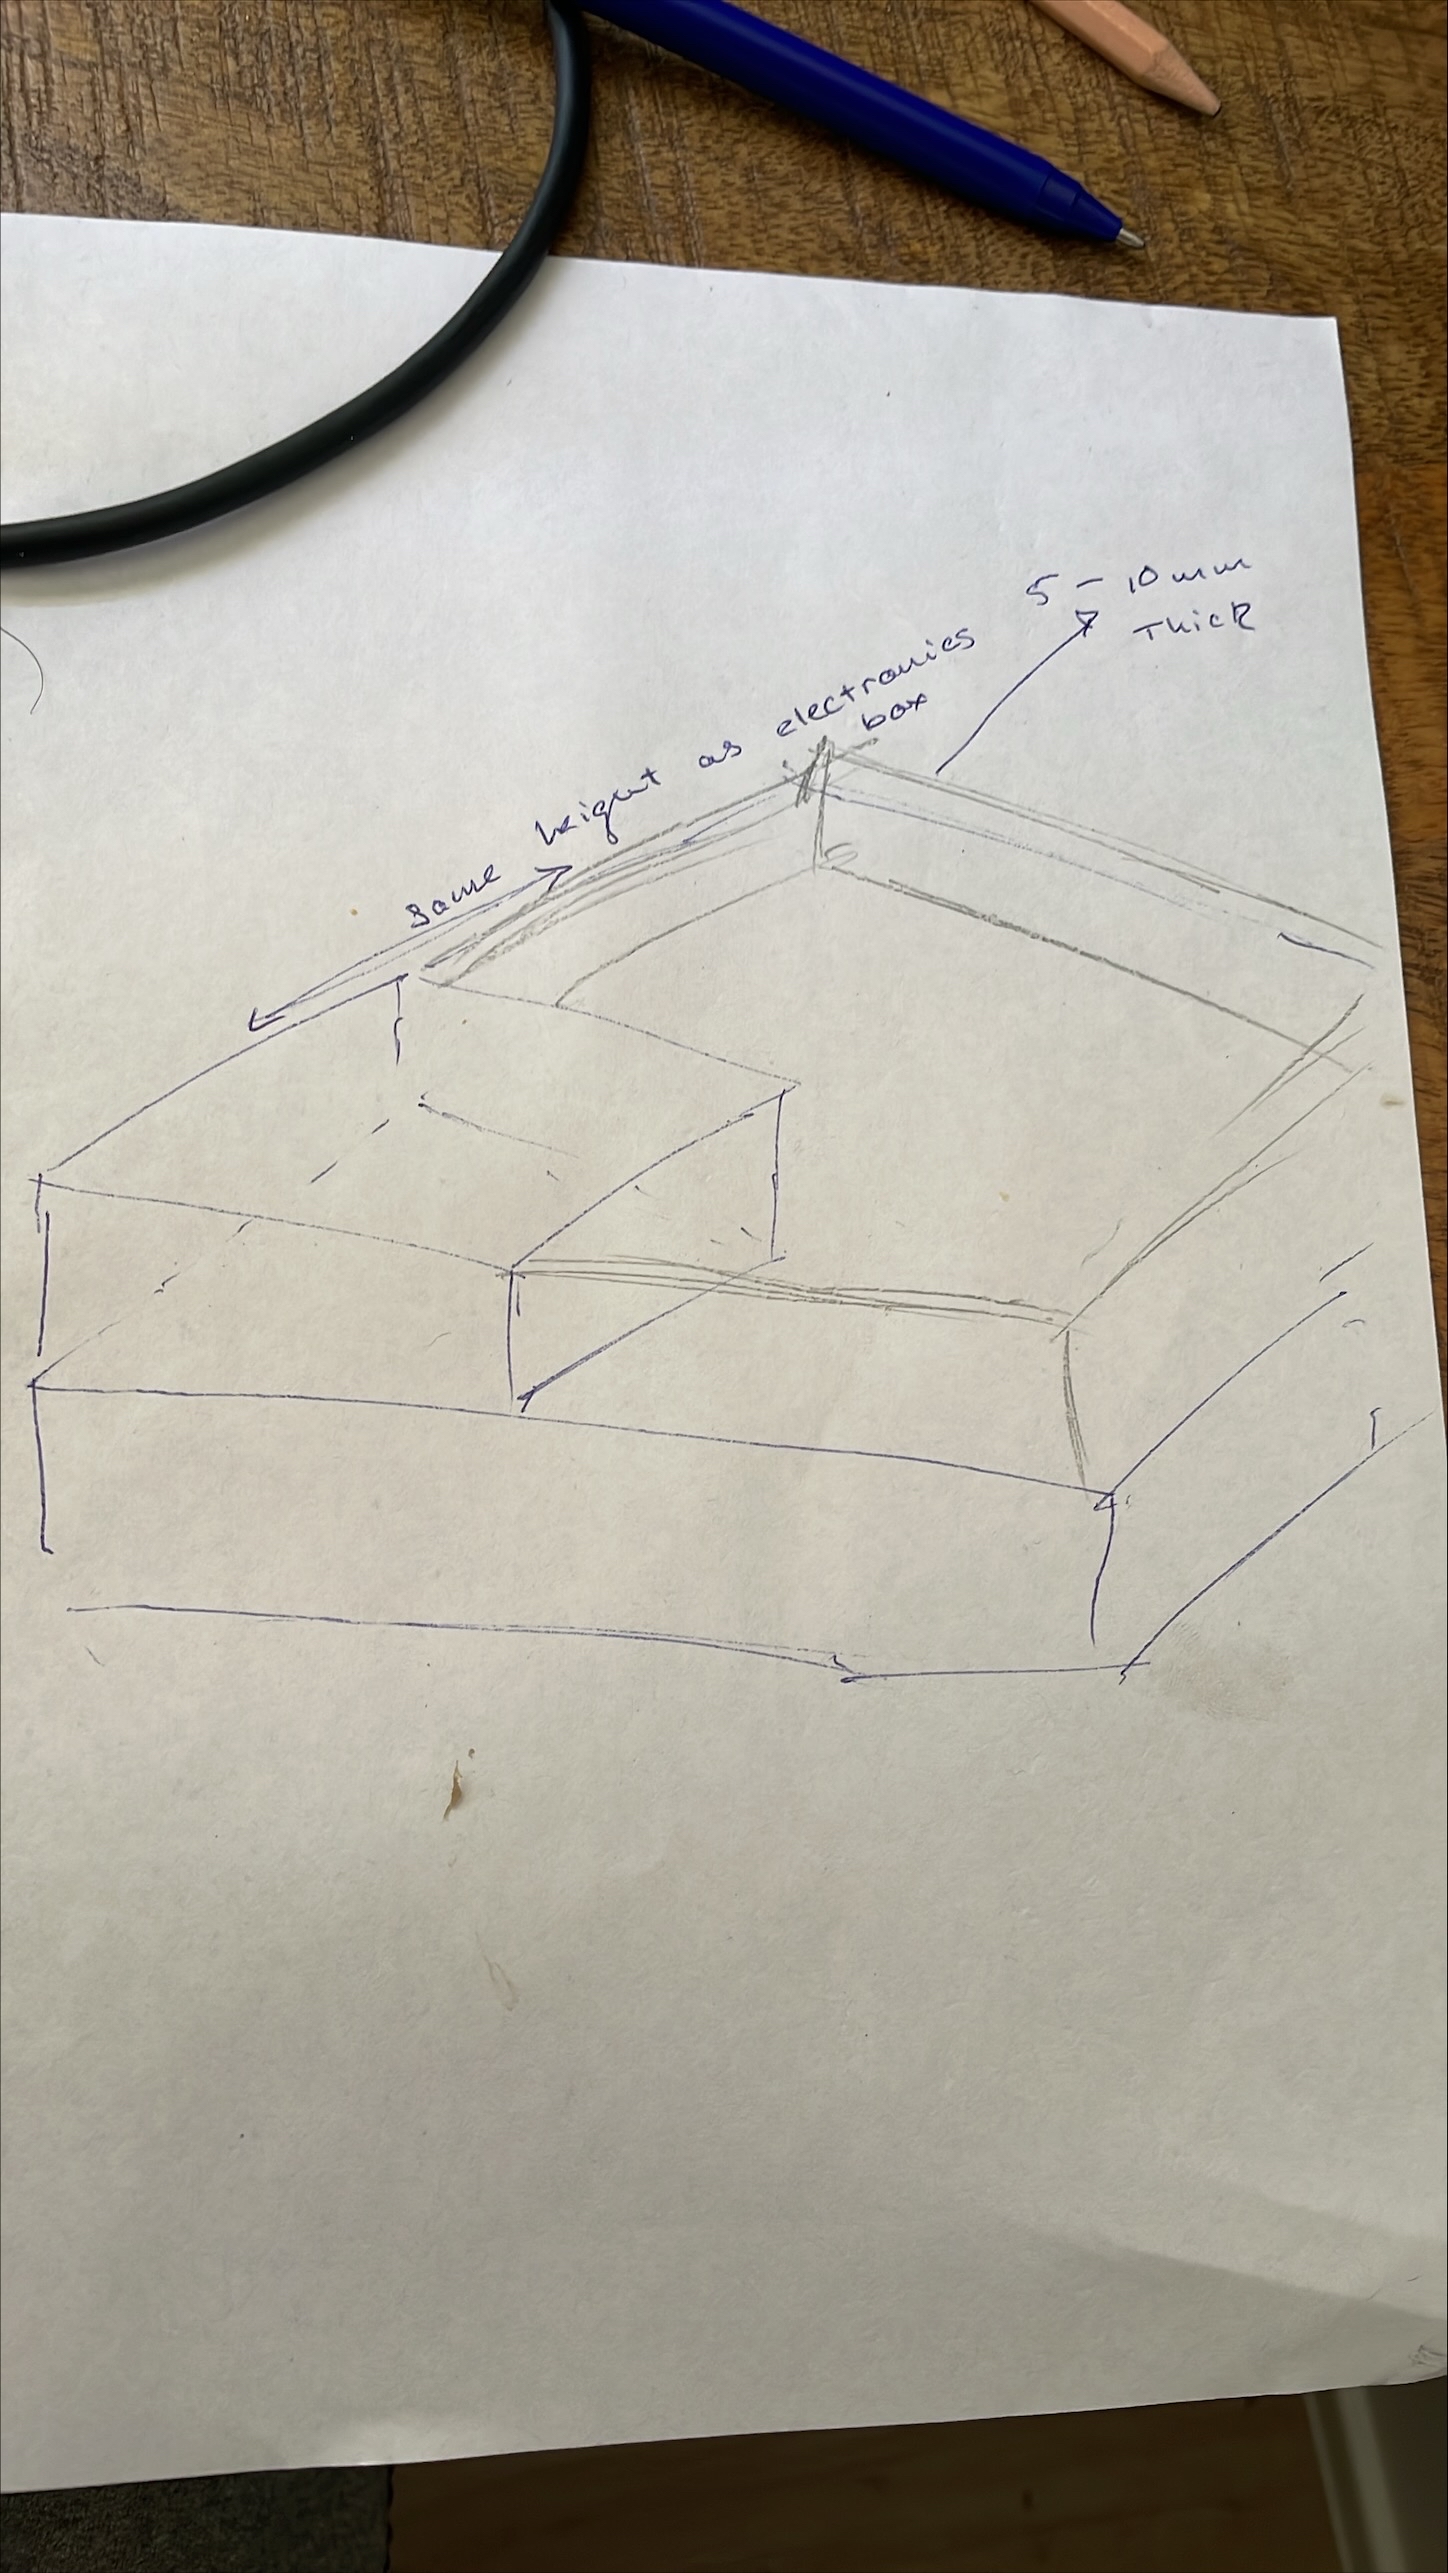 5 - 10 mm
Thick
same height as electronics
box